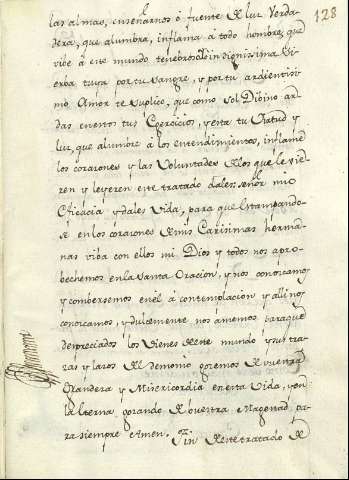 128
las almas, enseñarnos ô fuente de luz Verda-
dera, que alumbra, inflama â todo hombre, que
vive â este mundo tenebroso, Yo indignissima Si-
erba tuya por tu sangre, y por tu ardentissi-
mo Amor te suplico, que como Sol Divino ar-
das en estos tus Egercicios, y esta tu Virtud y
luz, que alumbre â los entendimientos, inflame
los corazones y las Voluntades de los que le vie-
ren y leyeren este tratado dales señor mio
eficacia y dales Vida, para que Estampando-
se en los corazones de mis Carisimas herma-
nas viba con ellos mi Dios y todos nos apro-
bechemos en la santa Oracion, y nos conozcamos
y combersemos en el â contemplacion y alli nos
conozcamos, y dulcemente nos âmemos para que
despreciados los Vienes deste mundo y sus tra-
zas y lazos del demonio gozemos de vuestra
Grandeza y Misericordia en esta Vida, y en
la eterna gozando de vuestra Magestad, pa-
ra siempre Amen. Fin deste tratado de